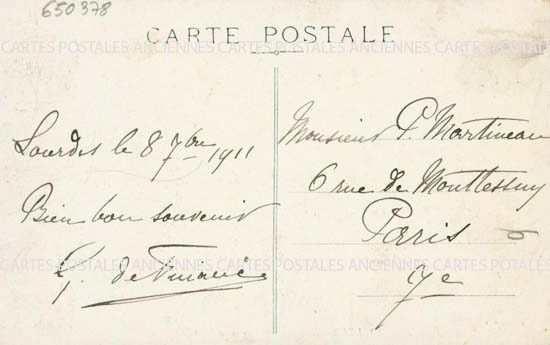 650378
CARTE POSTALE
CARTES POSTALES ANCIENNES CARTES POSTALES ANCIENNES CARTES
Lourdes le 8 7bre 1911
Bien bon souvenir
de
Monsieur P. Martineau
6 rue de Monttessuy
Paris
7e
CARTES POSTALES ANCIENNES CARTES POSTALES ANCIENNES CARTES POSTALES